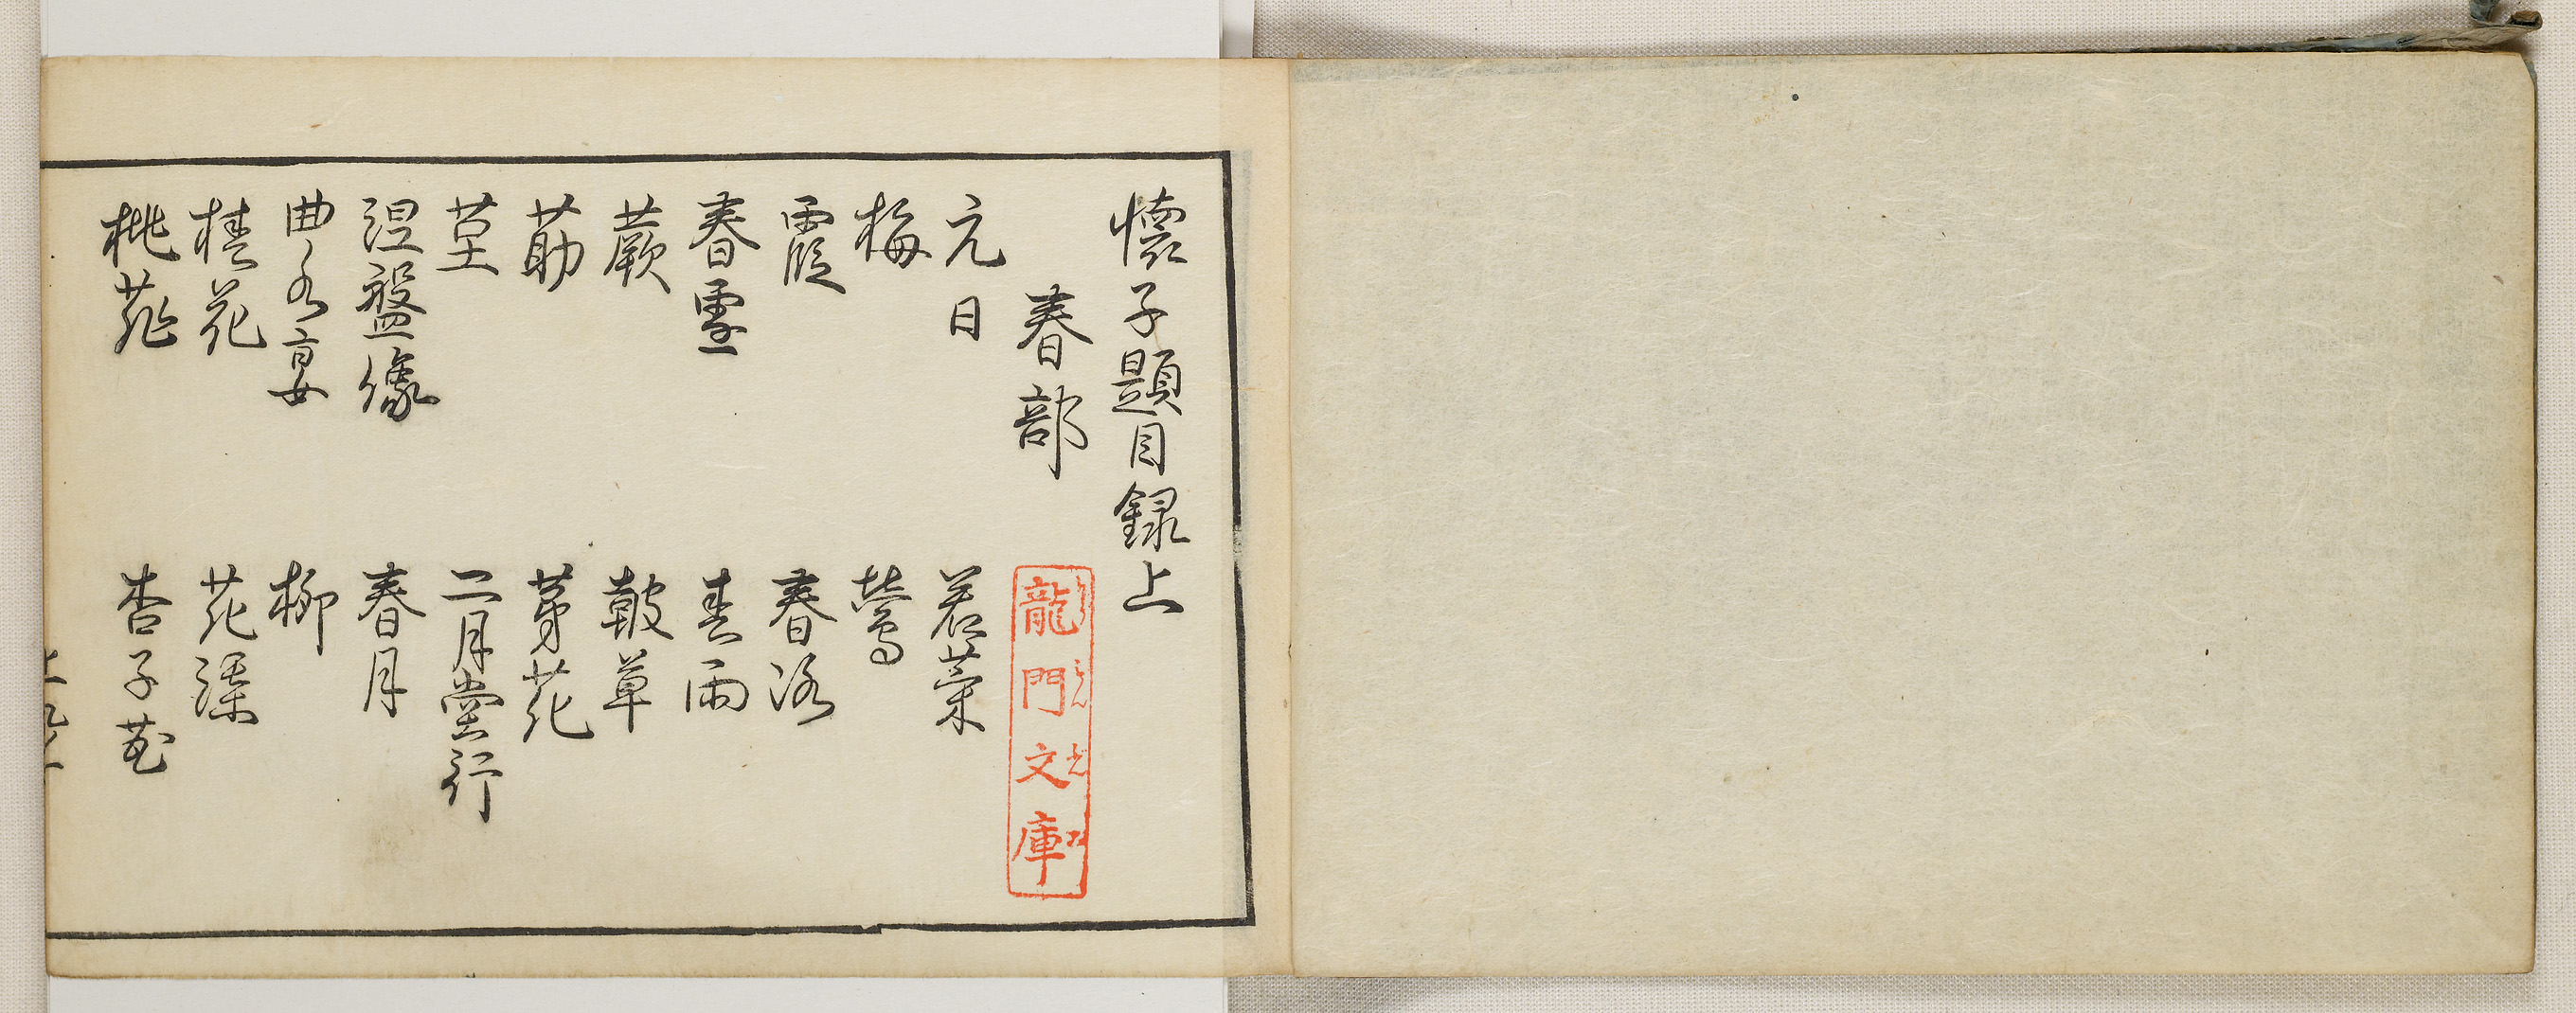 懐子題目録上
春部
龍門文庫
元日 若菜
梅 鶯
霞 春
春雪 春雨
蕨 皷草
莇 茅花
茎 二月堂行
涅盤像 春月
曲水宴 柳
椿花 花
桃花 杏子花